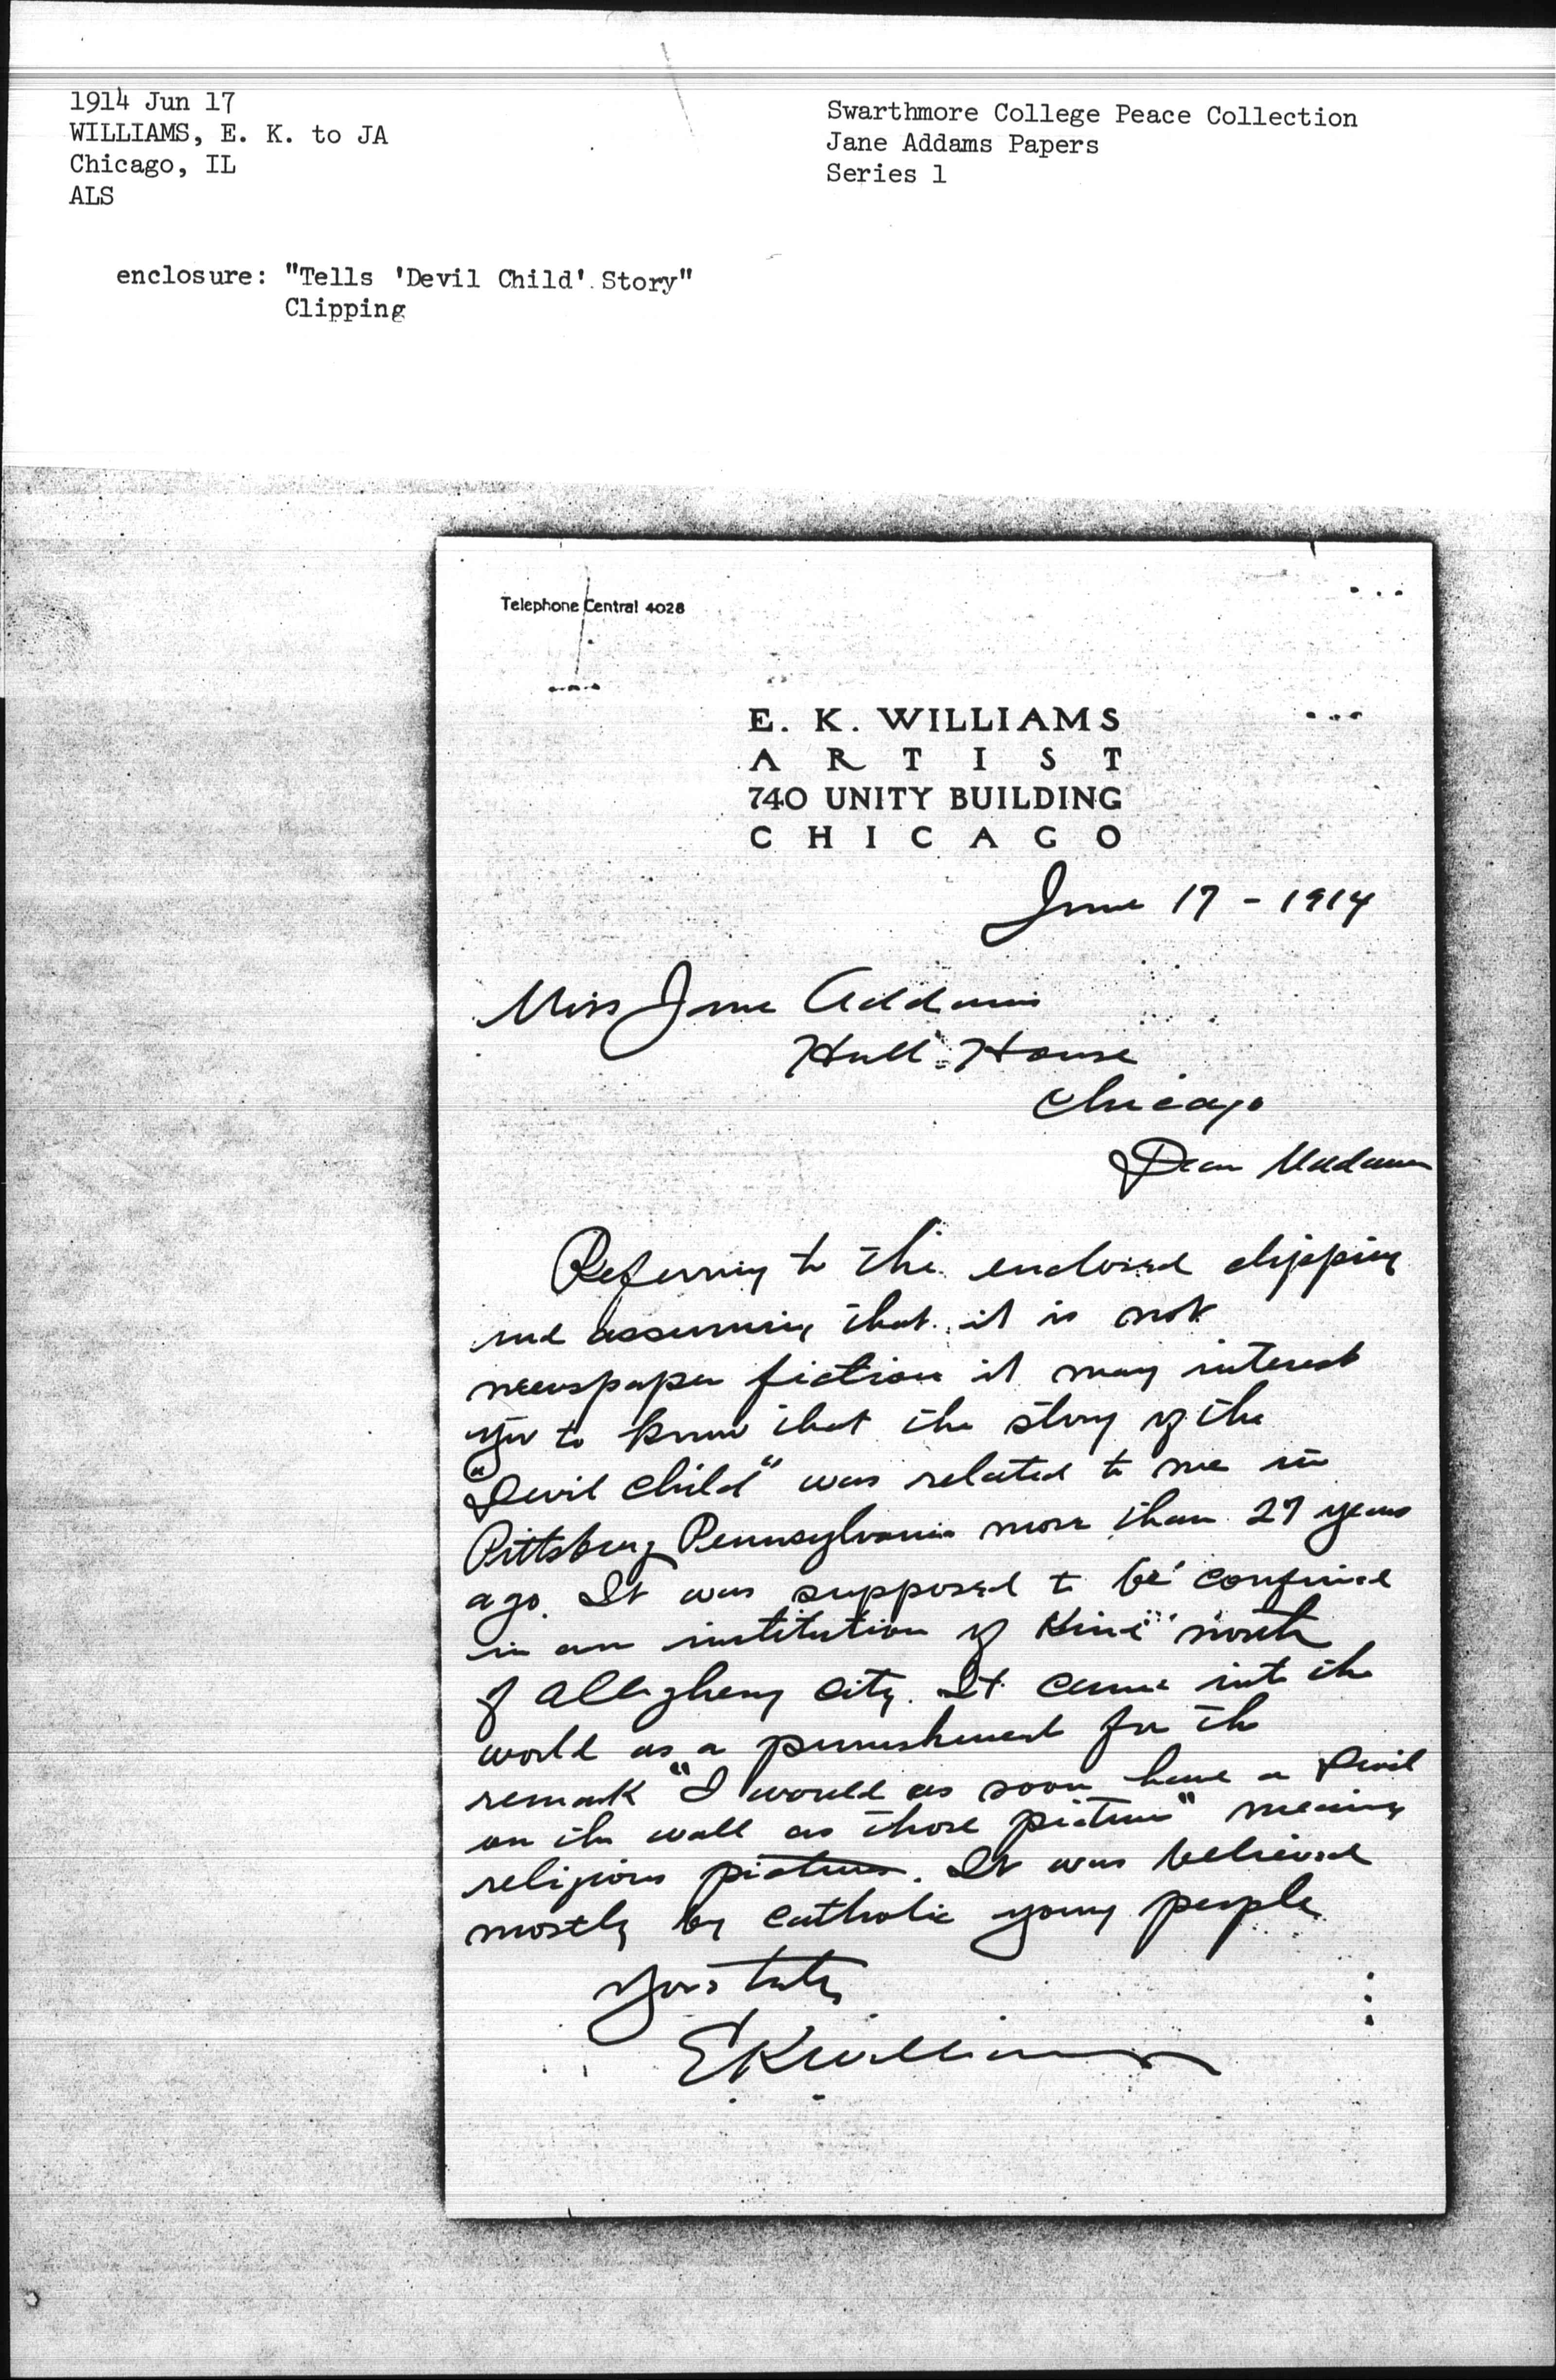 1914 Jun 17
WILLIAMS, E. K. to JA
Chicago, IL
ALS
enclosure: "Tells 'Devil Child' Story"
Clipping
Swarthmore College Peace Collection
Jane Addams Papers
Series 1
Telephone Central 4028
E. K. WILLIAMS
ARTIST
740 UNITY BUILDING
CHICAGO
June 17 - 1914
Miss Jane Addams
Hull-House
Chicago
Dear Madam
Referring to the enclosed clipping
and assuming that it is not
newspaper fiction it may interest
you to know that the story of the
"Devil Child" was related to me in
Pittsburg Pennsylvania more than 27 years
ago. It was supposed to be confined
in an institution of kind north
of Allegheny City. It came into the
world as a punishment for the
remark "I would as soon have a Devil
on the wall as those pictures" meaning
religious pictures. It was believed
mostly by Catholic young people
Yours truly
EKWilliams